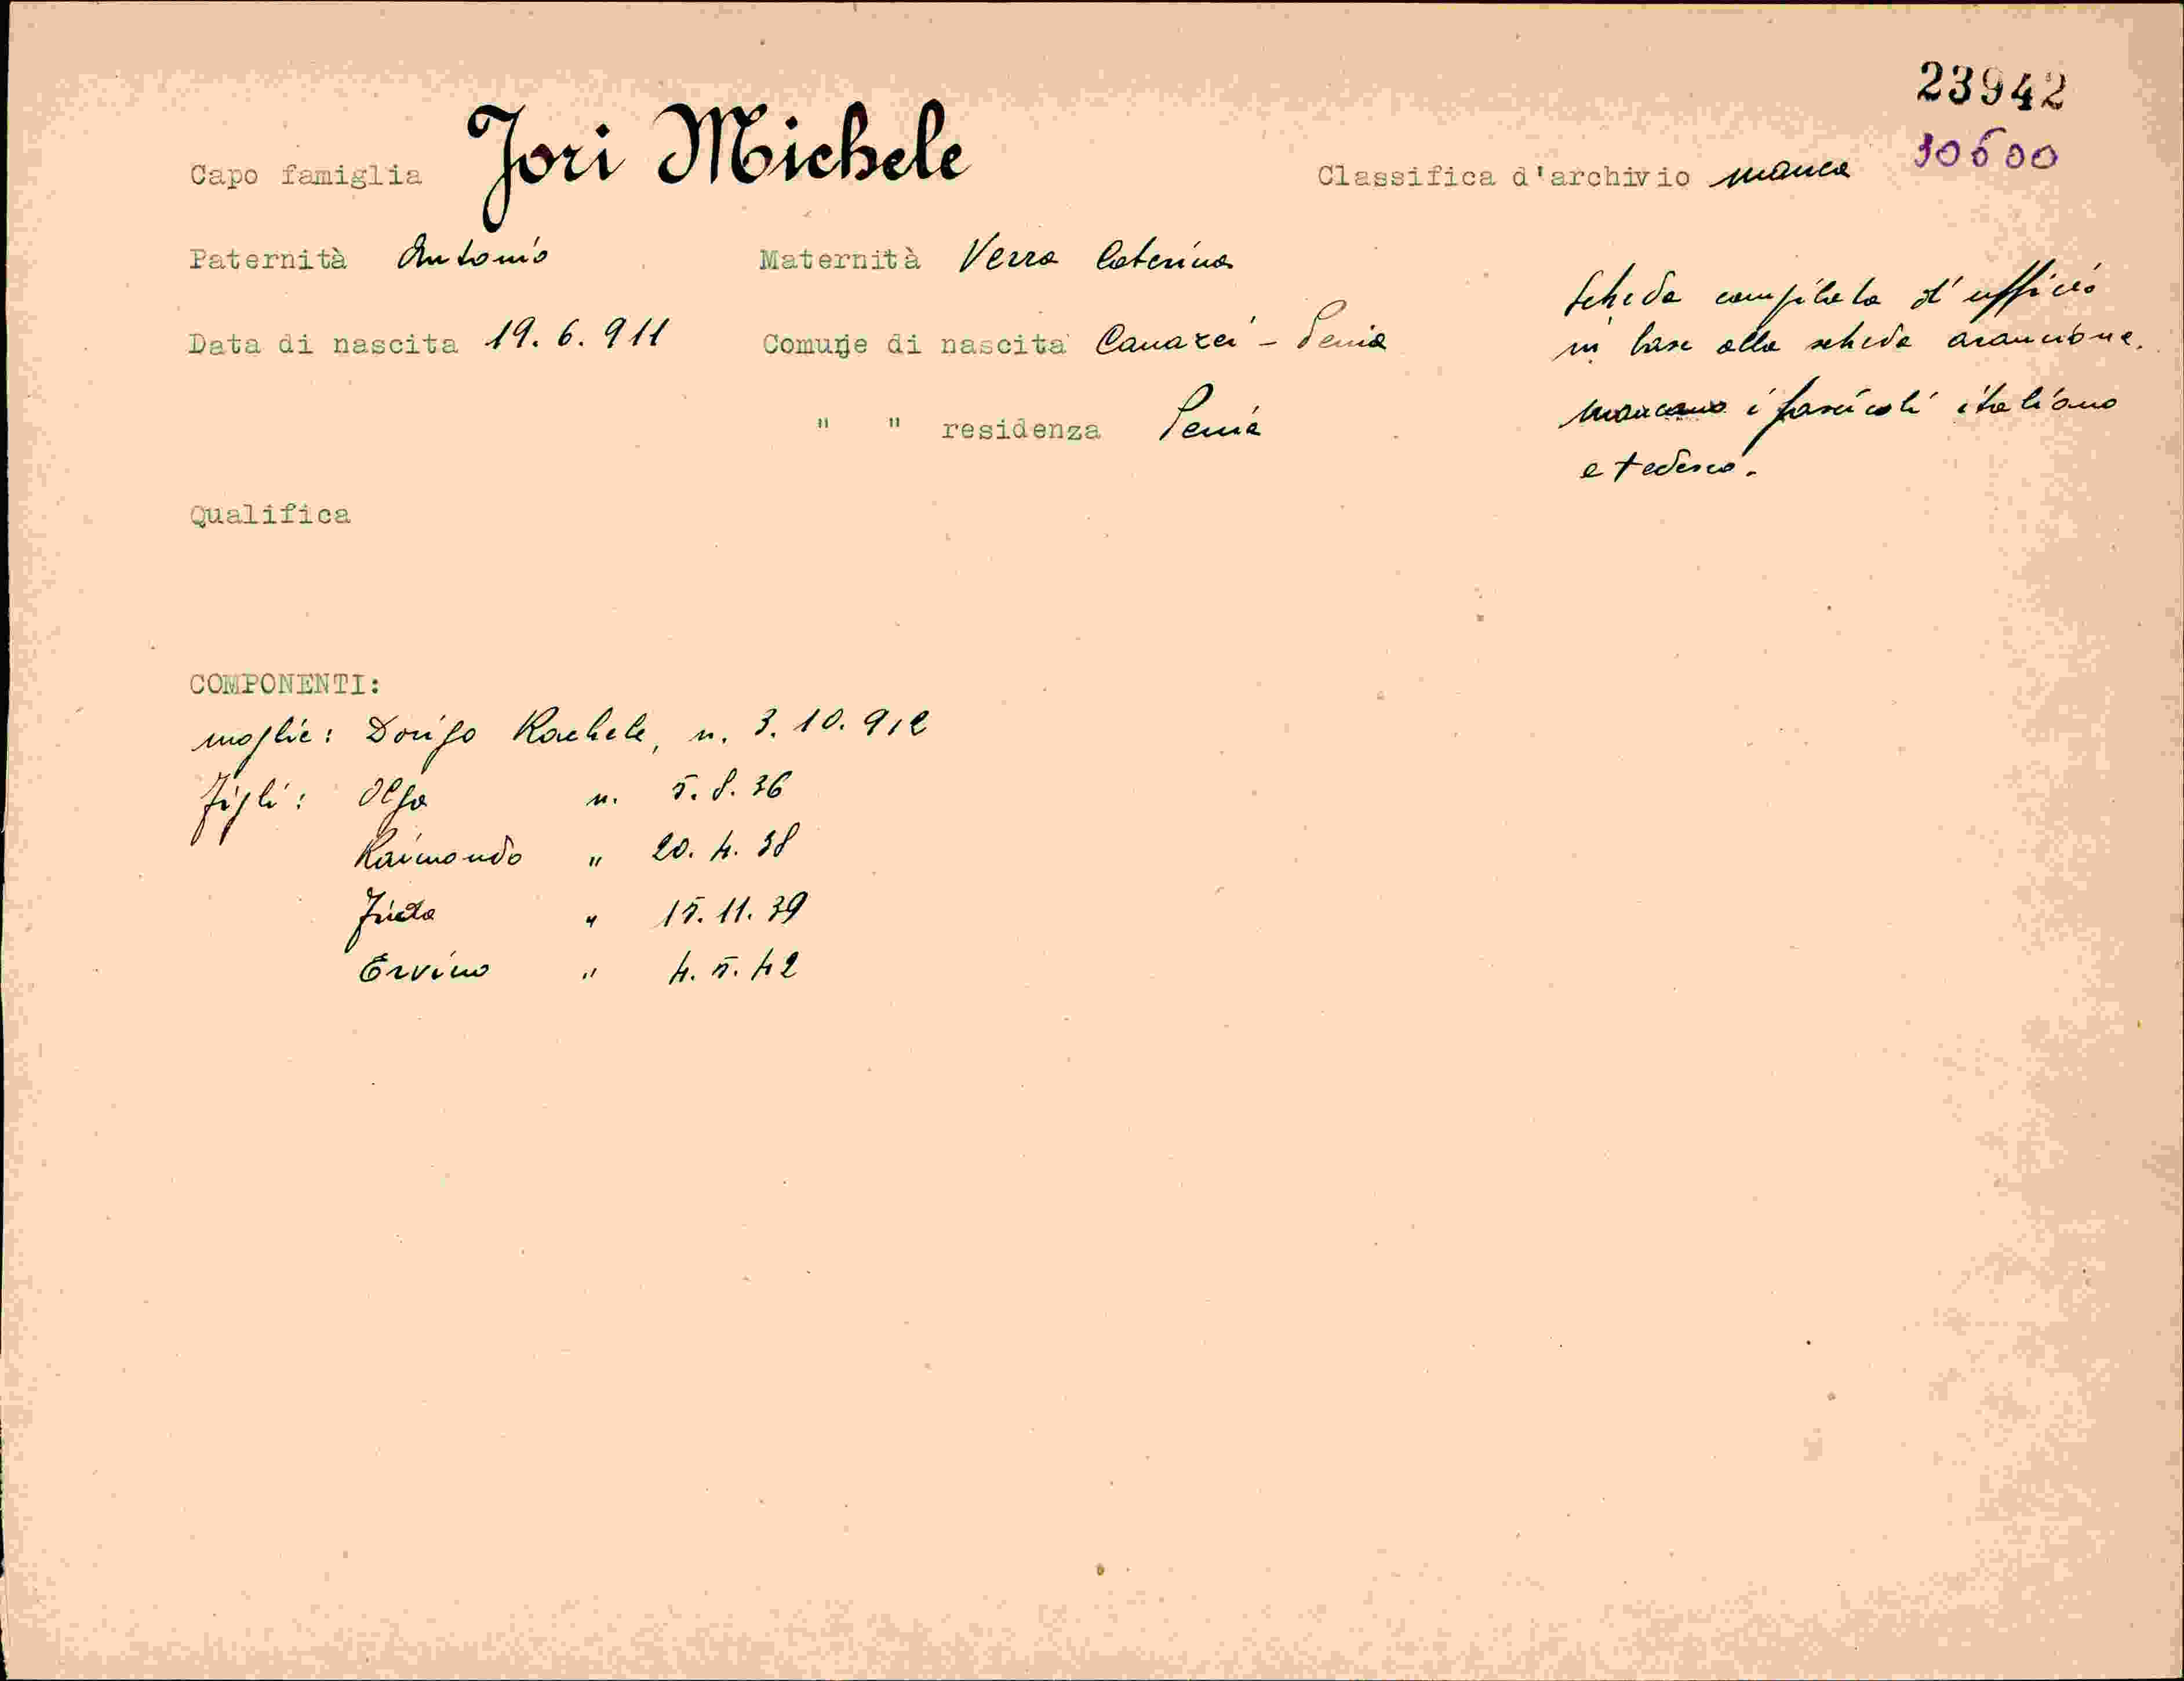 23942
Capo famiglia Jori Michele Classifica d'archivio manca 30600
Paternità Antonio Maternità Verra Caterina
Data di nascita 19.6.911 Comune di nascita Canazei - Penia
" " residenza Penia
Scheda compilata d'ufficio
in base alla scheda arancione.
mancano i fascicoli italiano
e tedesco.
Qualifica
COMPONENTI:
moglie: Dorigo Rachele, n. 3.10.912
figli: Olga n. 5.8.36
Raimondo " 20.4.38
" 15.11.39
Ervino " 4.5.42